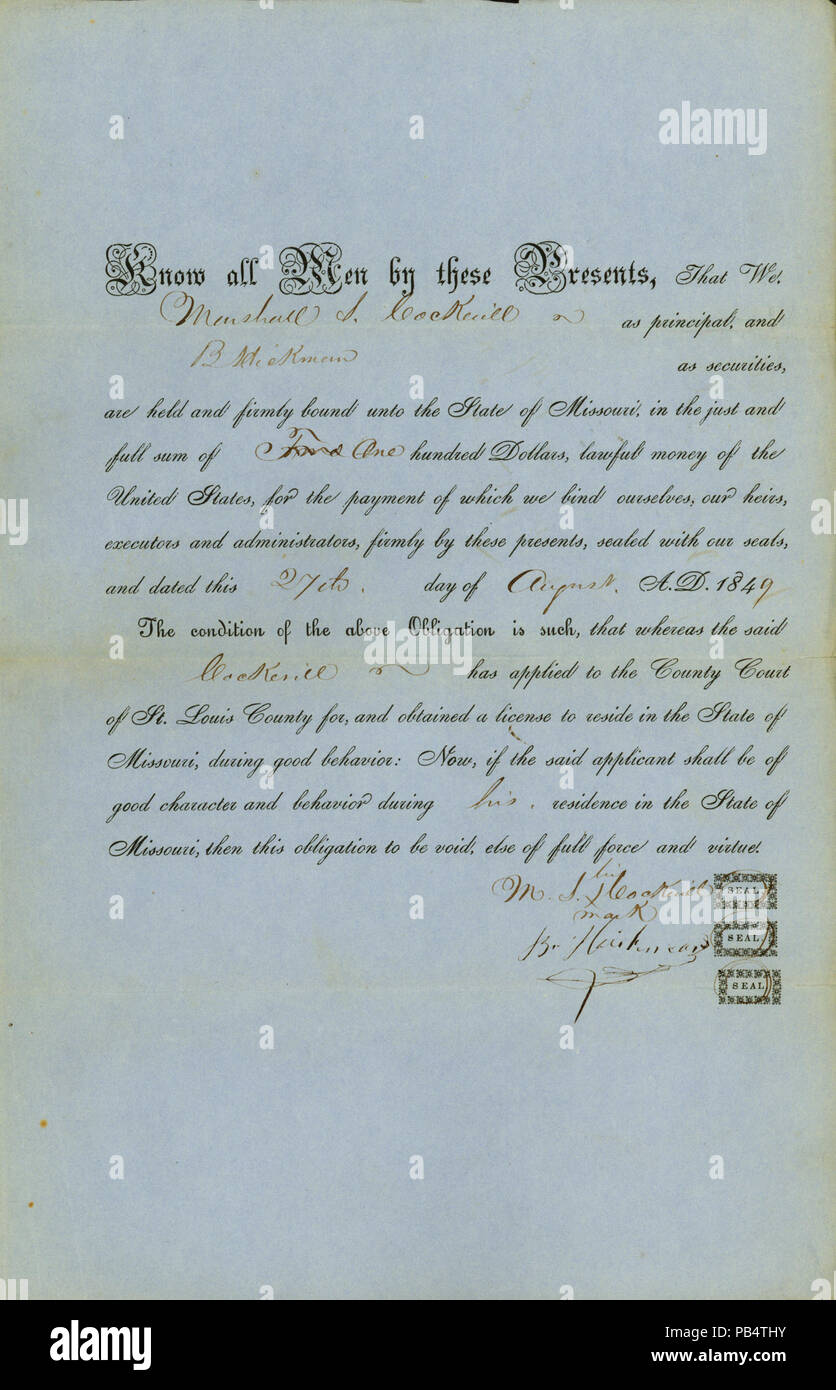 alamy
Know all Men by these Presents, That We,
Marshall S. Cockerill as principal, and
B Hickman as securities,
are held and firmly bound unto the State of Missouri, in the just and
full sum of One hundred Dollars, lawful money of the
United States, for the payment of which we bind ourselves, our heirs,
executors and administrators, firmly by these presents, sealed with our seals,
and dated this 27th. day of August. A.D. 1849
The condition of the above Obligation is such, that whereas the said
Cockerill has applied to the County Court
of St. Louis County for, and obtained a license to reside in the State of
Missouri, during good behavior: Now, if the said applicant shall be of
good character and behavior during his residence in the State of
Missouri, then this obligation to be void, else of full force and virtue.
his
M. S. Cockerill SEAL
mark
B. Hickman SEAL
SEAL
alamy
Image ID: PB4THY
www.alamy.com